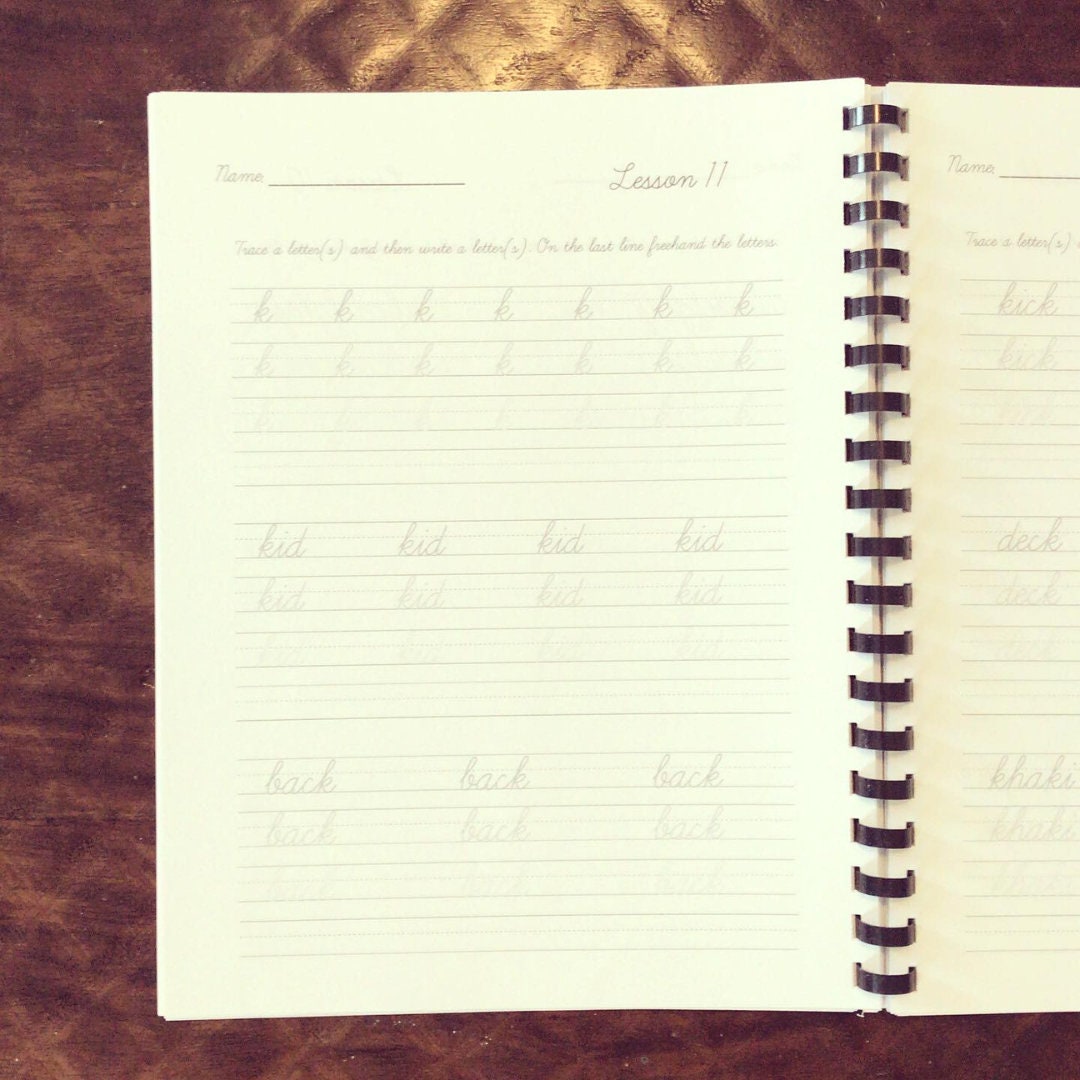 Name: Lesson 11
Trace a letter(s) and then write a letter(s). On the last line freehand the letters.
k k k k k k k
k k k k k k k
k k k k k k k
kid kid kid kid
kid kid kid kid
kid kid kid kid
back back back
back back back
back back back
Name:
Trace a letter(s)
kick
kick
kick
deck
deck
deck
khaki
khaki
khaki